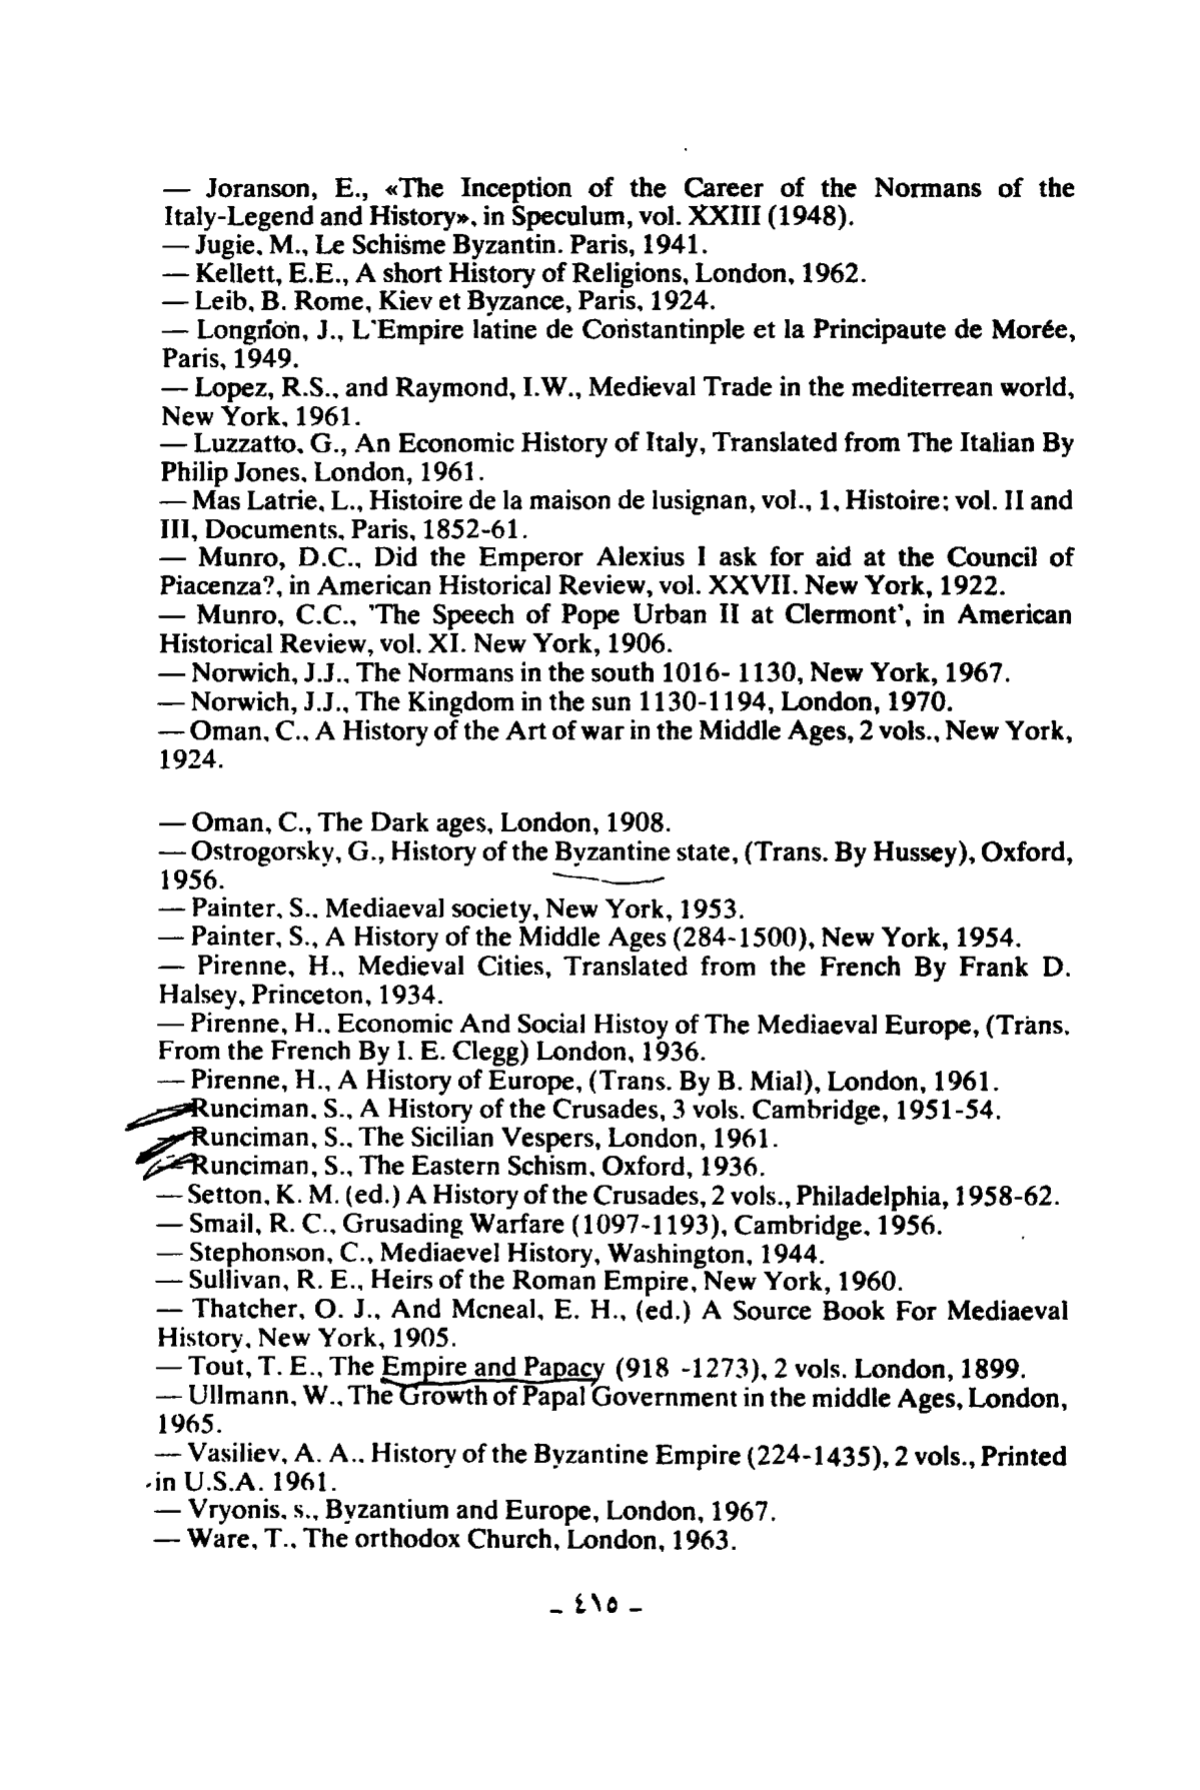 — Joranson, E., «The Inception of the Career of the Normans of the
Italy-Legend and History», in Speculum, vol. XXIII (1948).
— Jugie, M., Le Schisme Byzantin. Paris, 1941.
— Kellett, E.E., A short History of Religions, London, 1962.
— Leib, B. Rome, Kiev et Byzance, Paris, 1924.
— Longnon, J., L'Empire latine de Constantinple et la Principaute de Morée,
Paris, 1949.
— Lopez, R.S., and Raymond, I.W., Medieval Trade in the mediterrean world,
New York, 1961.
— Luzzatto, G., An Economic History of Italy, Translated from The Italian By
Philip Jones, London, 1961.
— Mas Latrie, L., Histoire de la maison de lusignan, vol., 1, Histoire; vol. II and
III, Documents, Paris, 1852-61.
— Munro, D.C., Did the Emperor Alexius I ask for aid at the Council of
Piacenza?, in American Historical Review, vol. XXVII. New York, 1922.
— Munro, C.C., 'The Speech of Pope Urban II at Clermont', in American
Historical Review, vol. XI. New York, 1906.
— Norwich, J.J., The Normans in the south 1016- 1130, New York, 1967.
— Norwich, J.J., The Kingdom in the sun 1130-1194, London, 1970.
— Oman, C., A History of the Art of war in the Middle Ages, 2 vols., New York,
1924.
— Oman, C., The Dark ages, London, 1908.
— Ostrogorsky, G., History of the Byzantine state, (Trans. By Hussey), Oxford,
1956.
— Painter, S., Mediaeval society, New York, 1953.
— Painter, S., A History of the Middle Ages (284-1500), New York, 1954.
— Pirenne, H., Medieval Cities, Translated from the French By Frank D.
Halsey, Princeton, 1934.
— Pirenne, H., Economic And Social Histoy of The Mediaeval Europe, (Trans.
From the French By I. E. Clegg) London, 1936.
— Pirenne, H., A History of Europe, (Trans. By B. Mial), London, 1961.
Runciman, S., A History of the Crusades, 3 vols. Cambridge, 1951-54.
Runciman, S., The Sicilian Vespers, London, 1961.
Runciman, S., The Eastern Schism, Oxford, 1936.
— Setton, K. M. (ed.) A History of the Crusades, 2 vols., Philadelphia, 1958-62.
— Smail, R. C., Grusading Warfare (1097-1193), Cambridge, 1956.
— Stephonson, C., Mediaevel History, Washington, 1944.
— Sullivan, R. E., Heirs of the Roman Empire, New York, 1960.
— Thatcher, O. J., And Mcneal, E. H., (ed.) A Source Book For Mediaeval
History, New York, 1905.
— Tout, T. E., The Empire and Papacy (918 -1273), 2 vols. London, 1899.
— Ullmann, W., The Growth of Papal Government in the middle Ages, London,
1965.
— Vasiliev, A. A., History of the Byzantine Empire (224-1435), 2 vols., Printed
in U.S.A. 1961.
— Vryonis, s., Byzantium and Europe, London, 1967.
— Ware, T., The orthodox Church, London, 1963.
– ٤١٥ –